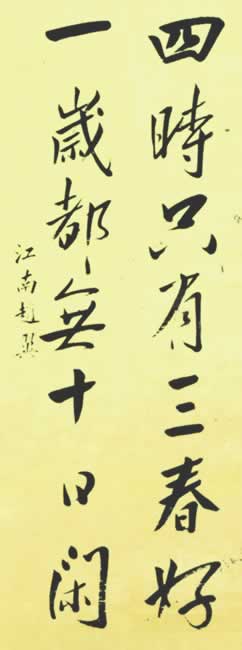 四時只有三春好
一歲都無十日閑
江南趙